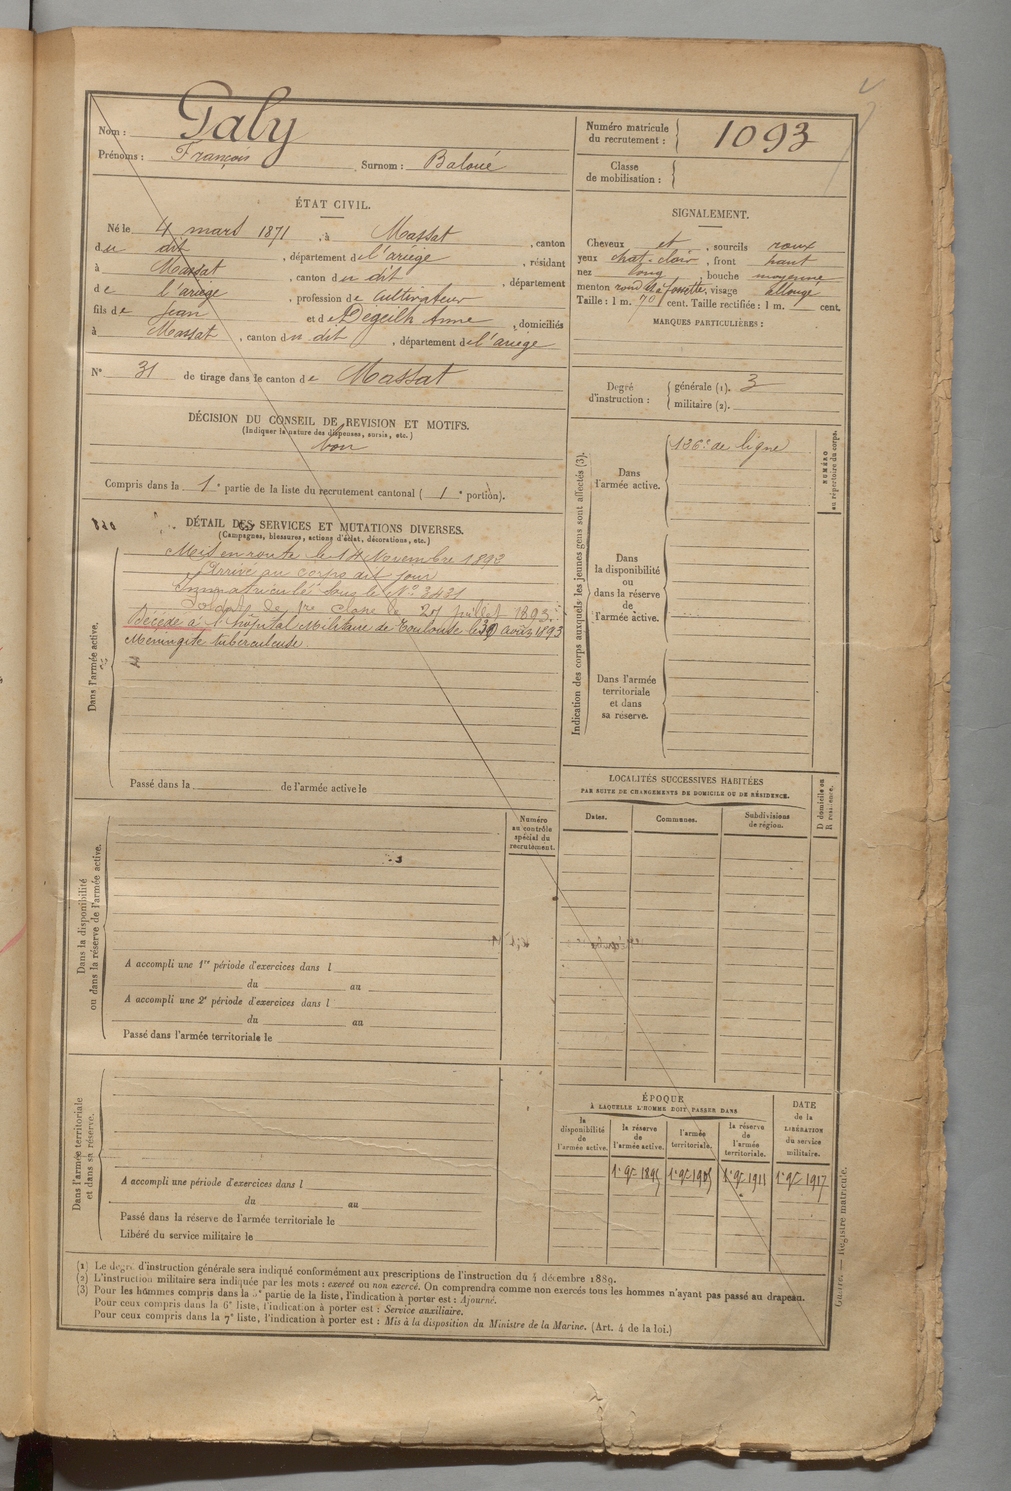 Nom : Galy
Prénoms : François Surnom : Baloué
Numéro matricule du recrutement : 1093
Classe de mobilisation :
ÉTAT CIVIL.
Né le 4 mars 1871, à Massat, canton
du dit, département de l'ariège, résidant
à Massat, canton du dit, département
de l'ariège, profession de cultivateur
fils de jean et de Degeilh Anne, domiciliés
à Massat, canton du dit, département de l'ariège
N° 31 de tirage dans le canton de Massat
DÉCISION DU CONSEIL DE REVISION ET MOTIFS.
(Indiquer la nature des dispenses, sursis, etc.)
bon
Compris dans la 1e partie de la liste du recrutement cantonal (1e portion).
SIGNALEMENT.
Cheveux et, sourcils roux
yeux chat. clair, front haut
nez long, bouche moyenne
menton rond et à fossette, visage allongé
Taille : 1 m. 70 cent. Taille rectifiée : 1 m. cent.
MARQUES PARTICULIÈRES :
Degré d'instruction : générale (1). 3
militaire (2).
DÉTAIL DES SERVICES ET MUTATIONS DIVERSES.
(Campagnes, blessures, actions d'éclat, décorations, etc.)
Dans l'armée active.
Mis en route le 14 Novembre 1892
Arrivé au corps dit jour
Immatriculé sous le N° 2421
Soldat de 1re classe le 27 juillet 1893.
Décédé à l'hôpital Militaire de Toulouse le 30 Août 1893
Méningite tuberculeuse
Passé dans la de l'armée active le
Indication des corps auxquels les jeunes gens sont affectés (3).
NUMÉRO au répertoire du corps.
Dans l'armée active.
136e de ligne
Dans la disponibilité ou dans la réserve de l'armée active.
Dans l'armée territoriale et dans sa réserve.
LOCALITÉS SUCCESSIVES HABITÉES
PAR SUITE DE CHANGEMENTS DE DOMICILE OU DE RÉSIDENCE.
Dates. Communes. Subdivisions de région. D domicile ou R résidence.
Numéro au contrôle spécial du recrutement.
Dans la disponibilité ou dans la réserve de l'armée active.
A accompli une 1re période d'exercices dans l
du au
A accompli une 2e période d'exercices dans l
du au
Passé dans l'armée territoriale le
Dans l'armée territoriale et dans sa réserve.
A accompli une période d'exercices dans l
du au
Passé dans la réserve de l'armée territoriale le
Libéré du service militaire le
ÉPOQUE
À LAQUELLE L'HOMME DOIT PASSER DANS
la disponibilité de l'armée active.
la réserve de l'armée active.
l'armée territoriale.
la réserve de l'armée territoriale.
DATE de la LIBÉRATION du service militaire.
1er 9bre 1895 1er 9bre 1905 1er 9bre 1911 1er 9bre 1917
(1) Le degré d'instruction générale sera indiqué conformément aux prescriptions de l'instruction du 4 décembre 1889.
(2) L'instruction militaire sera indiquée par les mots : exercé ou non exercé. On comprendra comme non exercés tous les hommes n'ayant pas passé au drapeau.
(3) Pour les hommes compris dans la 5e partie de la liste, l'indication à porter est : Ajourné.
Pour ceux compris dans la 6e liste, l'indication à porter est : Service auxiliaire.
Pour ceux compris dans la 7e liste, l'indication à porter est : Mis à la disposition du Ministre de la Marine. (Art. 4 de la loi.)
Registre matricule.